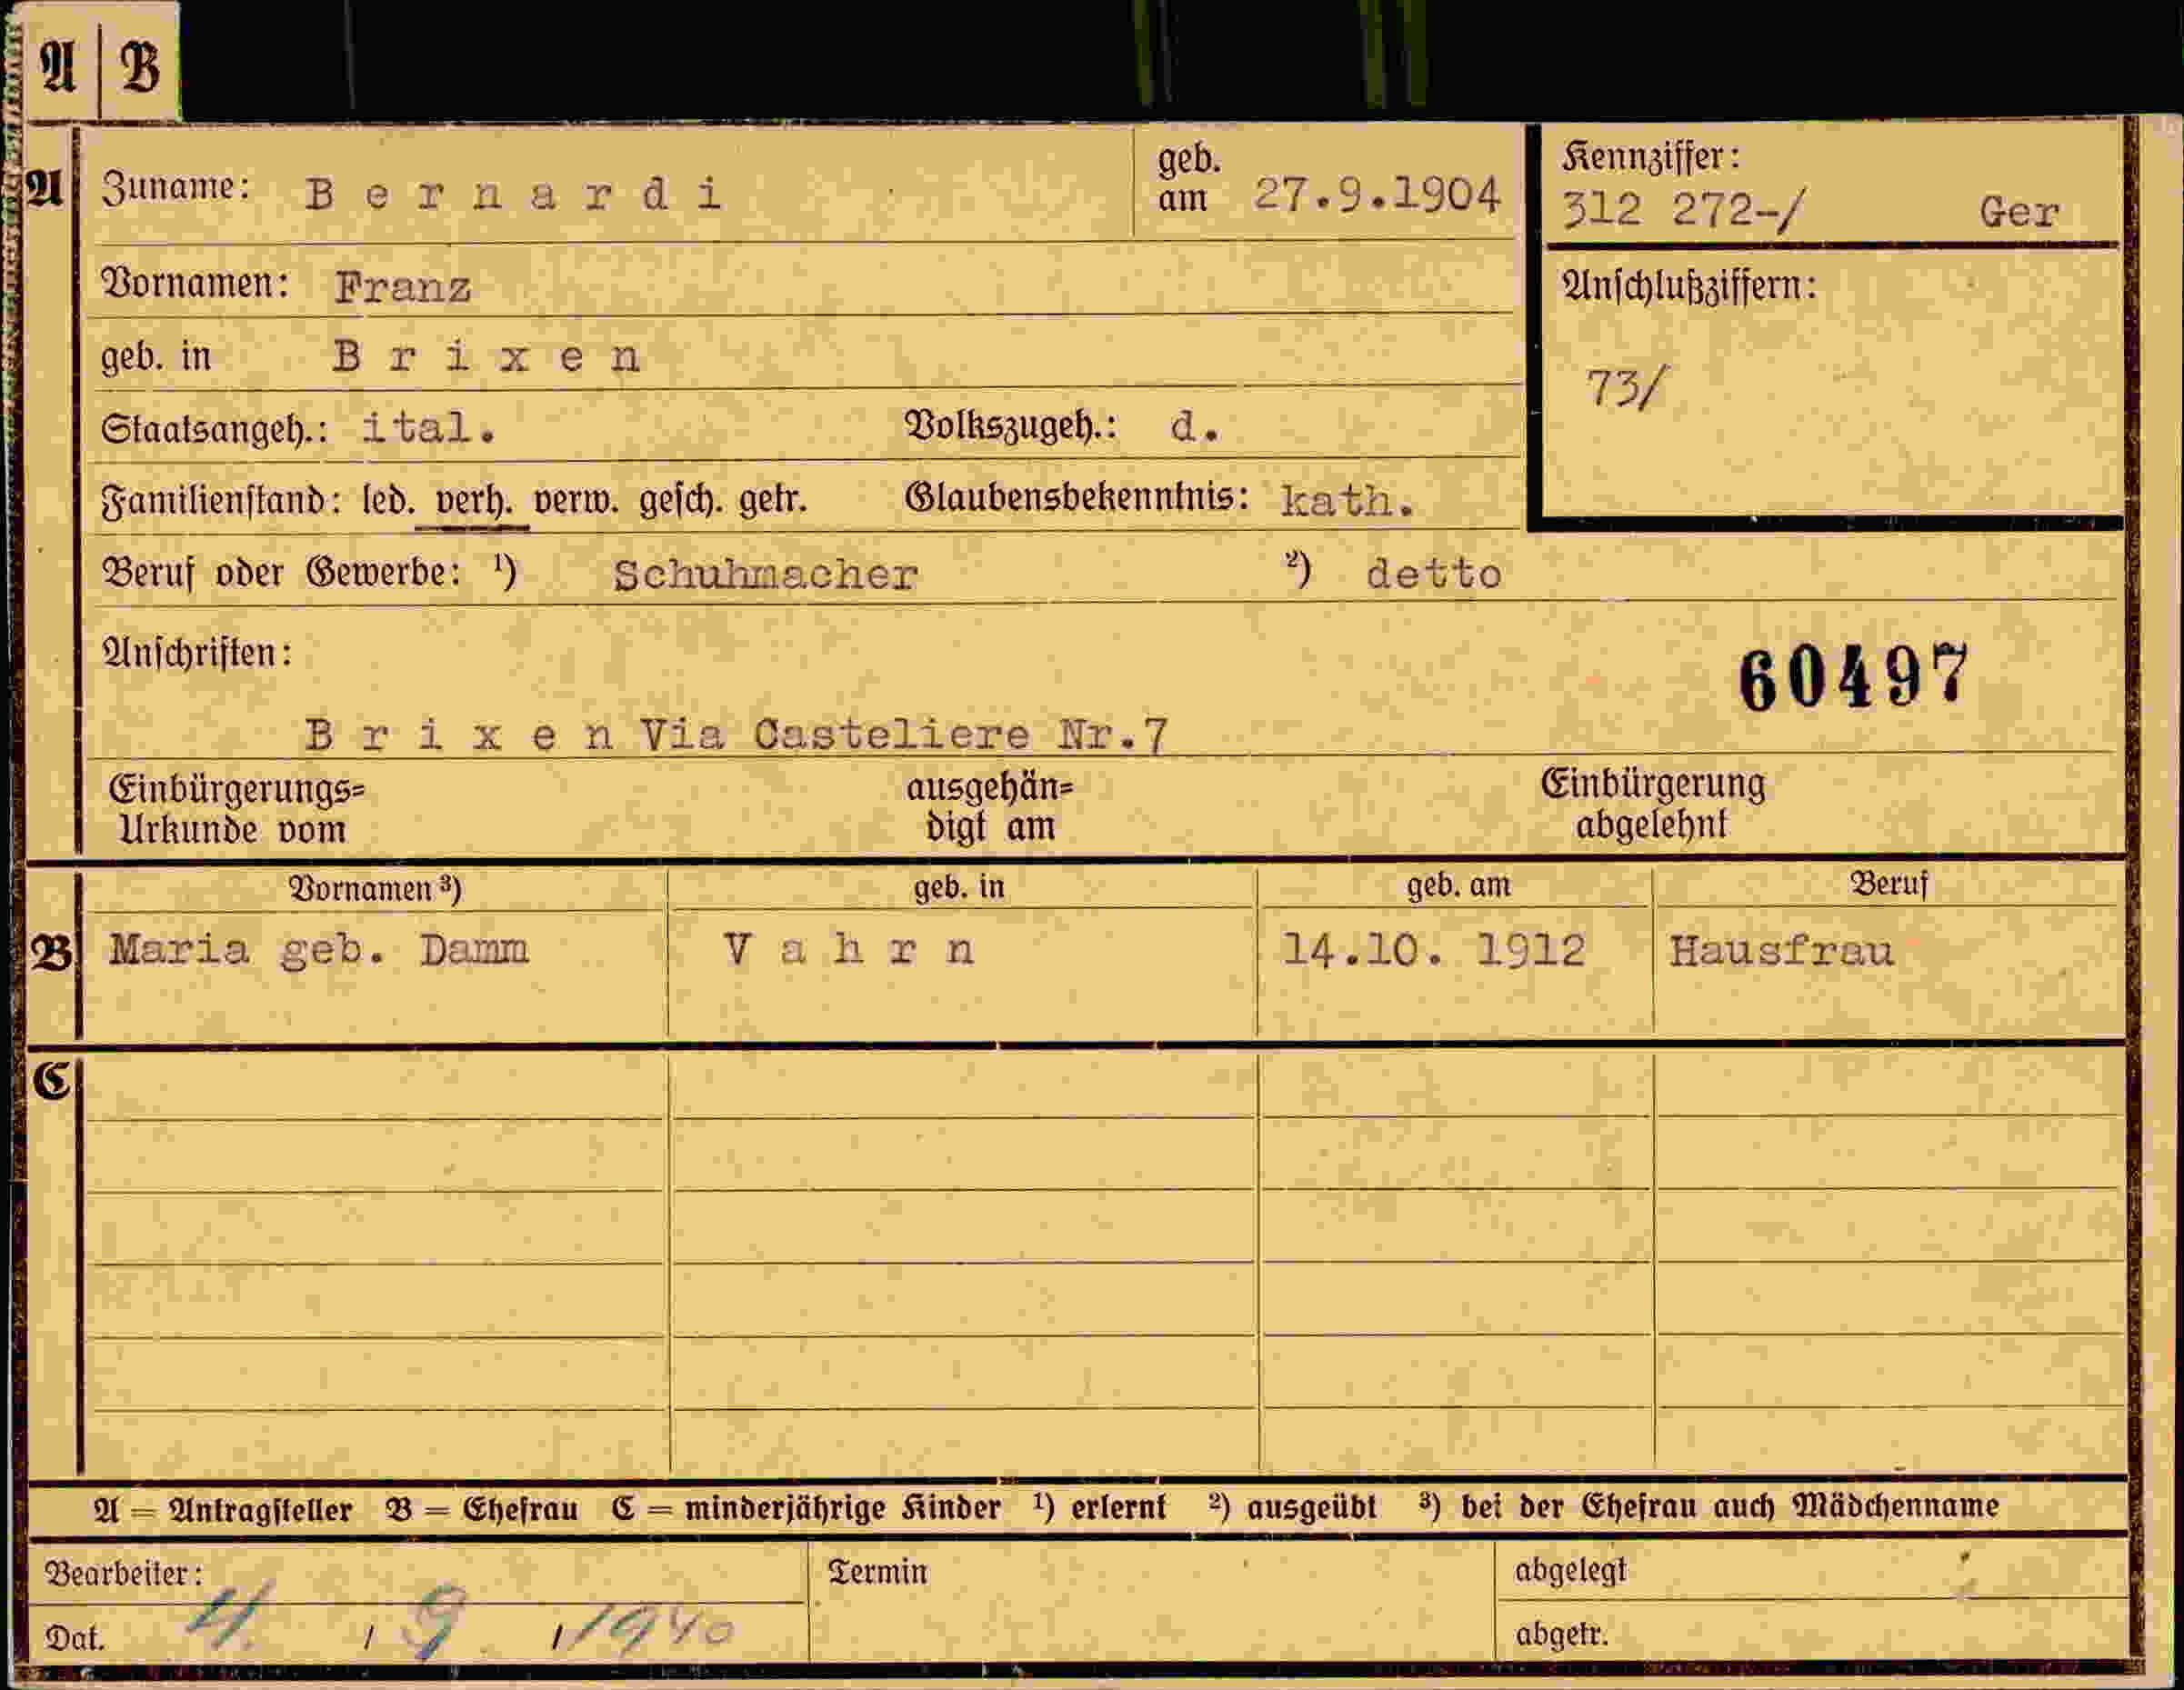 A | B
A Zuname: Bernardi geb. am 27.9.1904
Kennziffer:
312 272-/ Ger
Vornamen: Franz
Anschlußziffern:
73/
geb. in Brixen
Staatsangeh.: ital. Volkszugeh.: d.
Familienstand: led. verh. verw. gesch. getr. Glaubensbekenntnis: kath.
Beruf oder Gewerbe: ¹) Schuhmacher ²) detto
Anschriften:
60497
Brixen Via Casteliere Nr.7
Einbürgerungs= ausgehän= Einbürgerung
Urkunde vom digt am abgelehnt
Vornamen ³) geb. in geb. am Beruf
B Maria geb. Damm Vahrn 14.10. 1912 Hausfrau
C
A = Antragsteller B = Ehefrau C = minderjährige Kinder ¹) erlernt ²) ausgeübt ³) bei der Ehefrau auch Mädchenname
Bearbeiter: Termin abgelegt
Dat. 4. / 9. / 1940 abgetr.